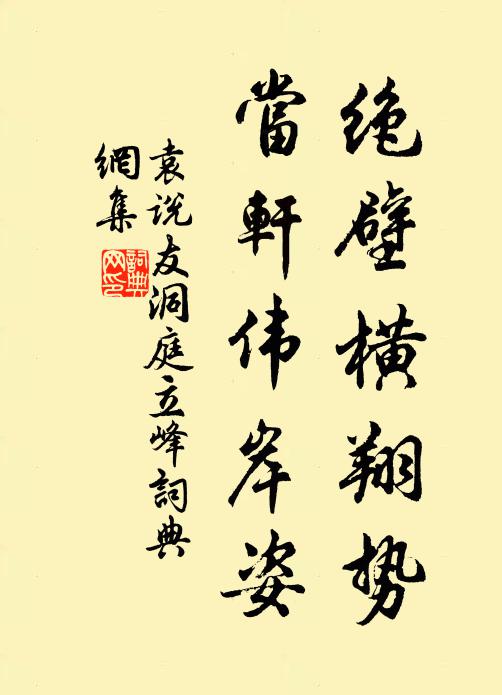 绝壁横翔势
當軒伟岸姿
袁说友洞庭立峰詞典
網集
詞典网印